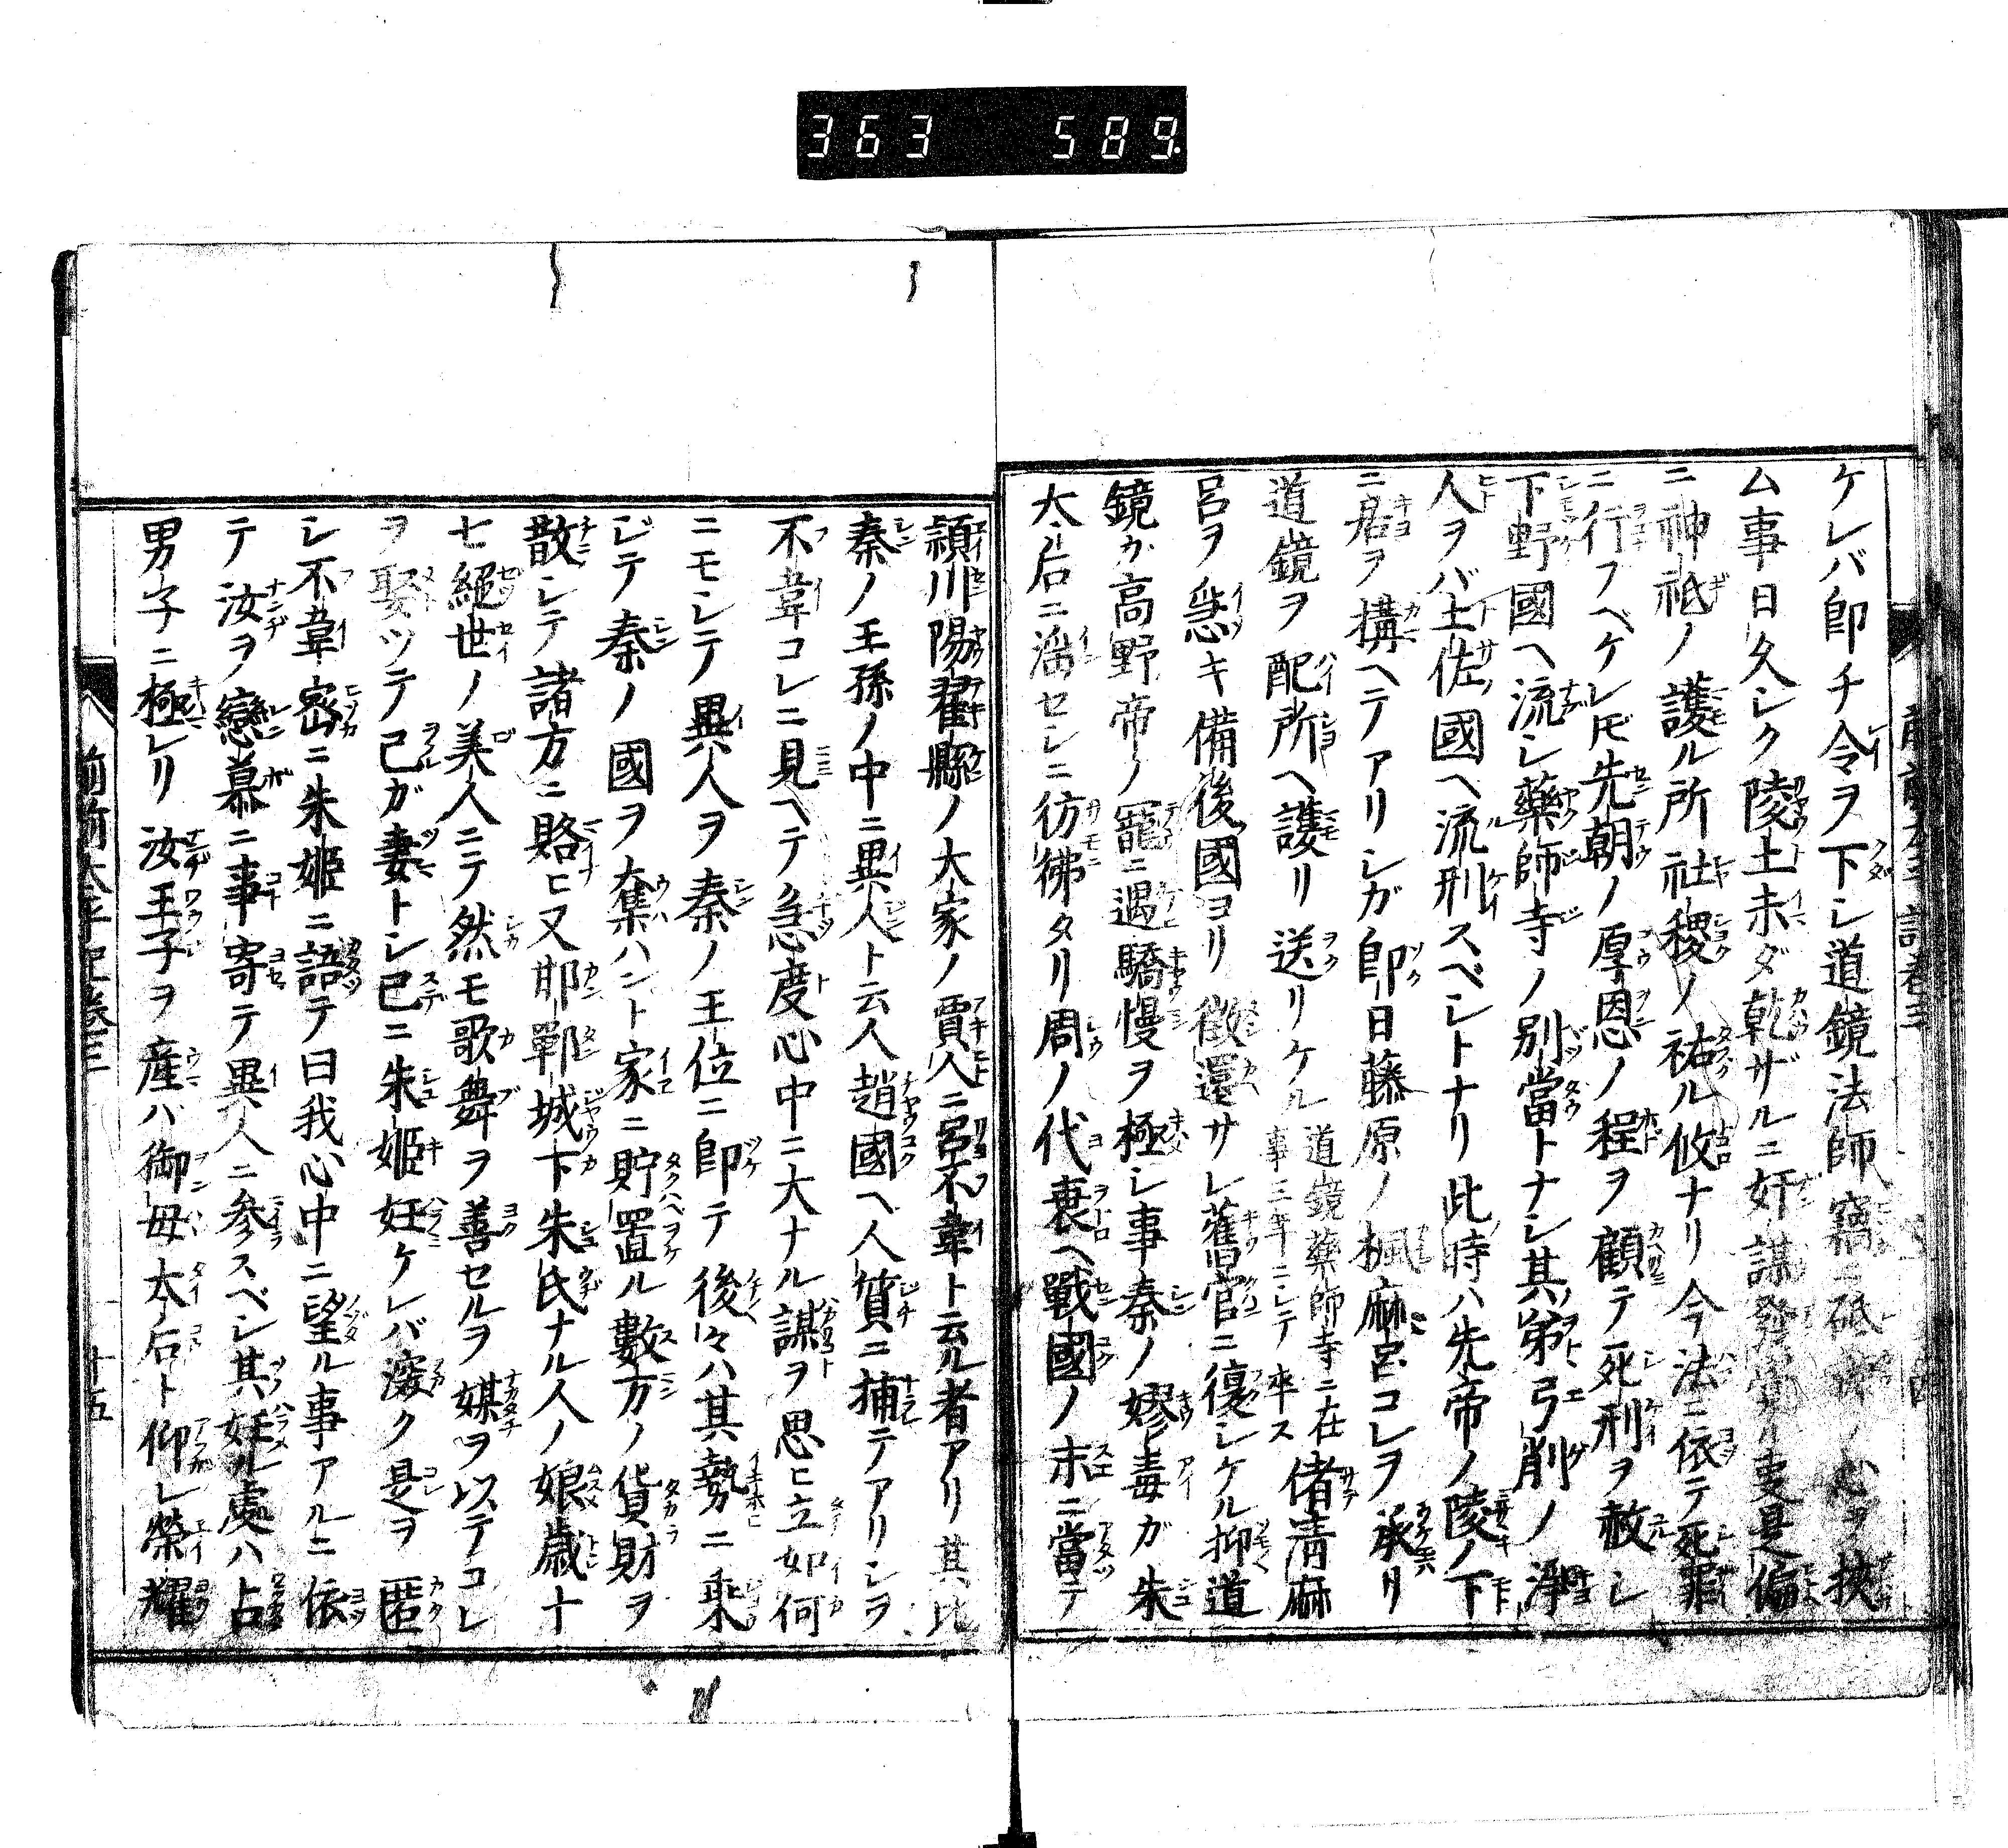 363 589.
ケレバ即チ令ヲ下シ道鏡法師竊ニ砥ノ心ヲ挾
ム事日久シク陵土未ダ乾ザルニ奸謀發覺ノ叓是偏
ニ神祇ノ護ル所社稷ノ祐ル攸ナリ今法ニ依テ死罪
ニ行フベケレ𪜈先朝ノ厚恩ノ程ヲ顧テ死刑ヲ赦シ
下野國ヘ流シ藥師寺ノ別當トナシ其弟弓削ノ淨
人ヲバ土佐國ヘ流刑スベシトナリ此時ハ先帝ノ陵ノ下
ニ居ヲ構ヘテアリシガ即日藤原ノ楓麻呂コレヲ承リ
道鏡ヲ配所ヘ護リ送リケル道鏡藥師寺ニ在事三年ニシテ卒ス偖清麻
呂ヲ急キ備後國ヨリ徴還サレ舊官ニ復シケル抑道
鏡ガ高野帝ノ寵ニ遇驕慢ヲ極シ事秦ノ嫪毒ガ朱
太后ニ淫セシニ彷彿タリ周ノ代衰ヘ戰國ノ末ニ當テ
頴川陽翟縣ノ大家ノ賈人ニ呂不韋ト云ル者アリ其比
秦ノ王孫ノ中ニ異人ト云人趙國ヘ人質ニ捕テアリシヲ
不韋コレニ見ヘテ急度心中ニ大ナル謀ヲ思ヒ立如何
ニモシテ異人ヲ秦ノ王位ニ即テ後々ハ其勢ニ乘
ジテ秦ノ國ヲ奪ハント家ニ貯置ル數万ノ貨財ヲ
散シテ諸方ニ賂ヒ又邯鄲城下朱氏ナル人ノ娘歳十
七絕世ノ美人ニテ然モ歌舞ヲ善セルヲ媒ヲ以テコレ
ヲ娶ツテ己ガ妻トシ已ニ朱姫妊ケレバ深ク是ヲ匿
シ不韋密ニ朱姫ニ語テ曰我心中ニ望ル事アルニ依
テ汝ヲ戀慕ニ事寄テ異人ニ参スベシ其妊ル處ハ占
男子ニ極レリ汝王子ヲ産バ御母太后ト仰レ榮耀
前前太平記卷三
十五